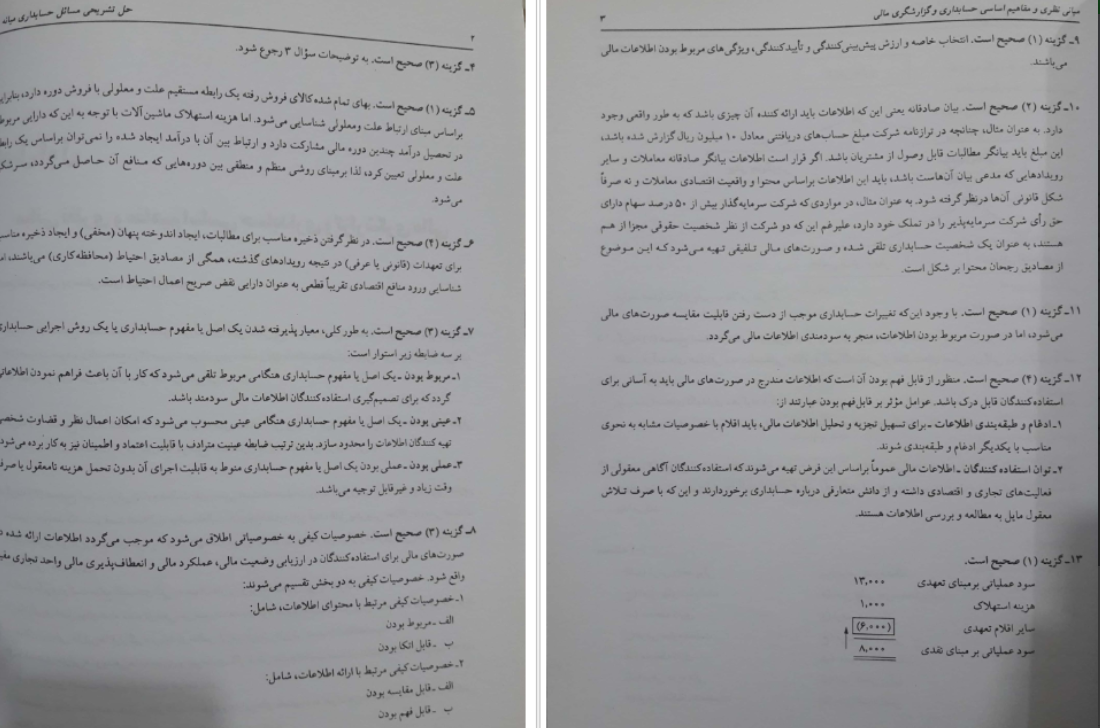 حل تشریحی مسائل حسابداری میانه
۲
۴ـ گزینه (۳) صحیح است. به توضیحات سؤال ۳ رجوع شود.
۵ـ گزینه (۱) صحیح است. بهای تمام شده کالای فروش رفته یک رابطه مستقیم علت و معلولی با فروش دوره دارد، بنابرا
براساس مبنای ارتباط علت ومعلولی شناسایی می‌شود. اما هزینه استهلاک ماشین آلات با توجه به این که دارایی مربوط
در تحصیل درآمد چندین دوره مالی مشارکت دارد و ارتباط بین آن با درآمد ایجاد شده را نمی‌توان براساس یک رابط
علت و معلولی تعیین کرد، لذا برمبنای روشی منظم و منطقی بین دوره‌هایی که منافع آن حاصل می‌گردد، سرشک
می‌شود.
۶ـ گزینه (۴) صحیح است. در نظر گرفتن ذخیره مناسب برای مطالبات، ایجاد اندوخته پنهان (مخفی) و ایجاد ذخیره مناسب
برای تعهدات (قانونی یا عرفی) در نتیجه رویدادهای گذشته، همگی از مصادیق احتیاط (محافظه کاری) می‌باشند، اما
شناسایی ورود منافع اقتصادی تقریباً قطعی به عنوان دارایی نقض صریح اعمال احتیاط است.
۷ـ گزینه (۳) صحیح است. به طور کلی، معیار پذیرفته شدن یک اصل یا مفهوم حسابداری یا یک روش اجرایی حسابداری
بر سه ضابطه زیر استوار است:
۱ـ مربوط بودن ـ یک اصل یا مفهوم حسابداری هنگامی مربوط تلقی می‌شود که کار با آن باعث فراهم نمودن اطلاعاتی
گردد که برای تصمیم‌گیری استفاده کنندگان اطلاعات مالی سودمند باشد.
۲ـ عینی بودن ـ یک اصل یا مفهوم حسابداری هنگامی عینی محسوب می‌شود که امکان اعمال نظر و قضاوت شخصی
تهیه کنندگان اطلاعات را محدود سازد. بدین ترتیب ضابطه عینیت مترادف با قابلیت اعتماد و اطمینان نیز به کار برده می‌شود
۳ـ عملی بودن ـ عملی بودن یک اصل یا مفهوم حسابداری منوط به قابلیت اجرای آن بدون تحمل هزینه نامعقول یا صرف
وقت زیاد و غیر قابل توجیه می‌باشد.
۸ـ گزینه (۳) صحیح است. خصوصیات کیفی به خصوصیاتی اطلاق می‌شود که موجب می‌گردد اطلاعات ارائه شده د
صورت‌های مالی برای استفاده کنندگان در ارزیابی وضعیت مالی، عملکرد مالی و انعطاف‌پذیری مالی واحد تجاری مفید
واقع شود. خصوصیات کیفی به دو بخش تقسیم می‌شوند:
۱ـ خصوصیات کیفی مرتبط با محتوای اطلاعات، شامل:
الف ـ مربوط بودن
ب ـ قابل اتکا بودن
۲ـ خصوصیات کیفی مرتبط با ارائه اطلاعات، شامل:
الف ـ قابل مقایسه بودن
ب ـ قابل فهم بودن
مبانی نظری و مفاهیم اساسی حسابداری و گزارشگری مالی
۳
۹ـ گزینه (۱) صحیح است. انتخاب خاصه و ارزش پیش‌بینی‌کنندگی و تأییدکنندگی، ویژگی‌های مربوط بودن اطلاعات مالی
می‌باشند.
۱۰ـ گزینه (۲) صحیح است. بیان صادقانه یعنی این که اطلاعات باید ارائه کننده آن چیزی باشد که به طور واقعی وجود
دارد. به عنوان مثال، چنانچه در ترازنامه شرکت مبلغ حساب‌های دریافتنی معادل ۱۰ میلیون ریال گزارش شده باشد،
این مبلغ باید بیانگر مطالبات قابل وصول از مشتریان باشد. اگر قرار است اطلاعات بیانگر صادقانه معاملات و سایر
رویدادهایی که مدعی بیان آن‌هاست باشد، باید این اطلاعات براساس محتوا و واقعیت اقتصادی معاملات و نه صرفاً
شکل قانونی آن‌ها درنظر گرفته شود. به عنوان مثال، در مواردی که شرکت سرمایه‌گذار بیش از ۵۰ درصد سهام دارای
حق رأی شرکت سرمایه‌پذیر را در تملک خود دارد، علیرغم این که این دو شرکت از نظر شخصیت حقوقی مجزا از هم
هستند، به عنوان یک شخصیت حسابداری تلقی شده و صورت‌های مالی تلفیقی تهیه می‌شود که این موضوع
از مصادیق رجحان محتوا بر شکل است.
۱۱ـ گزینه (۱) صحیح است. با وجود این که تغییرات حسابداری موجب از دست رفتن قابلیت مقایسه صورت‌های مالی
می‌شود، اما در صورت مربوط بودن اطلاعات، منجر به سودمندی اطلاعات مالی می‌گردد.
۱۲ـ گزینه (۴) صحیح است. منظور از قابل فهم بودن آن است که اطلاعات مندرج در صورت‌های مالی باید به آسانی برای
استفاده کنندگان قابل درک باشد. عوامل مؤثر بر قابل‌فهم بودن عبارتند از:
۱ـ ادغام و طبقه‌بندی اطلاعات ـ برای تسهیل تجزیه و تحلیل اطلاعات مالی، باید اقلام با خصوصیات مشابه به نحوی
مناسب با یکدیگر ادغام و طبقه‌بندی شوند.
۲ـ توان استفاده کنندگان ـ اطلاعات مالی عموماً براساس این فرض تهیه می‌شوند که استفاده کنندگان آگاهی معقولی از
فعالیت‌های تجاری و اقتصادی داشته و از دانش متعارفی درباره حسابداری برخوردارند و این که با صرف تلاش
معقول مایل به مطالعه و بررسی اطلاعات هستند.
۱۳ـ گزینه (۱) صحیح است.
سود عملیاتی برمبنای تعهدی ۱۳,۰۰۰
هزینه استهلاک ۱,۰۰۰
سایر اقلام تعهدی (۶,۰۰۰)
سود عملیاتی بر مبنای نقدی ۸,۰۰۰